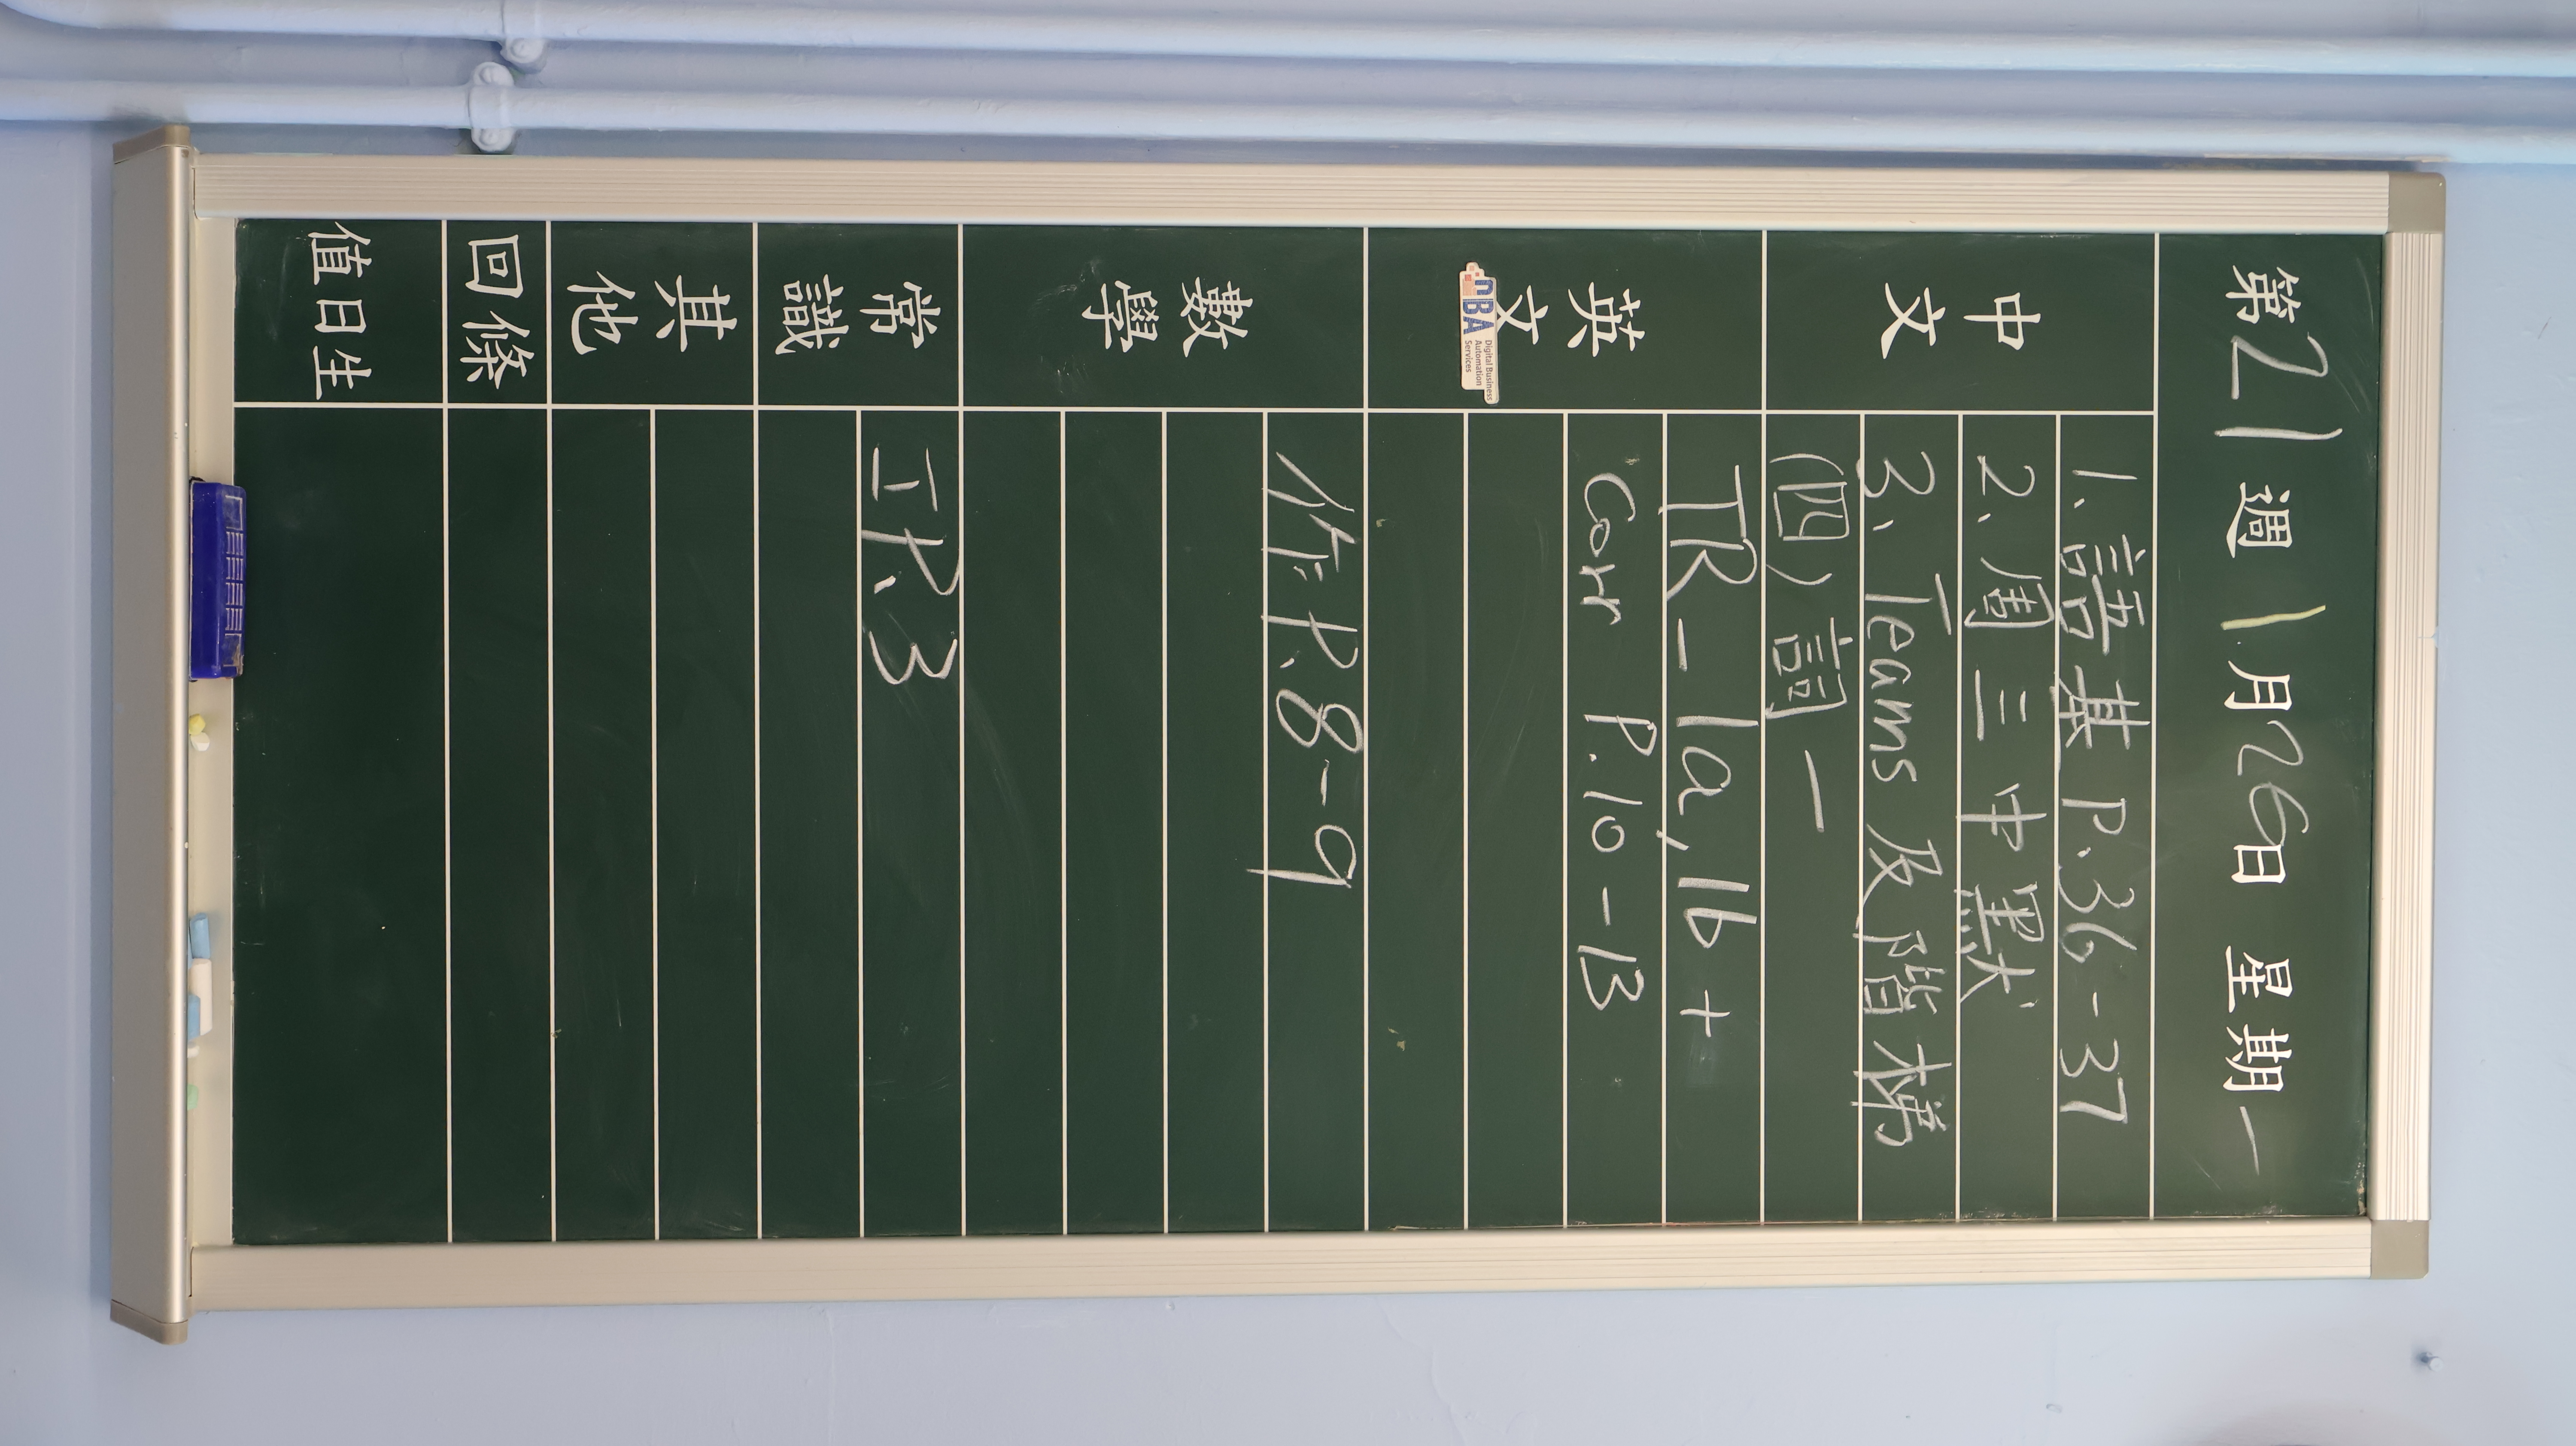 第21週 1月26日 星期一
中文
1. 語基 P.36-37
2. 周三中默
3. Teams 及階梯
(四) 詞一
英文
DBA
Digital Business
Automation
Services
TR - 1a, 1b +
Corr P.10 - 13
數學
作 P.8-9
常識
工 P.3
其他
回條
值日生